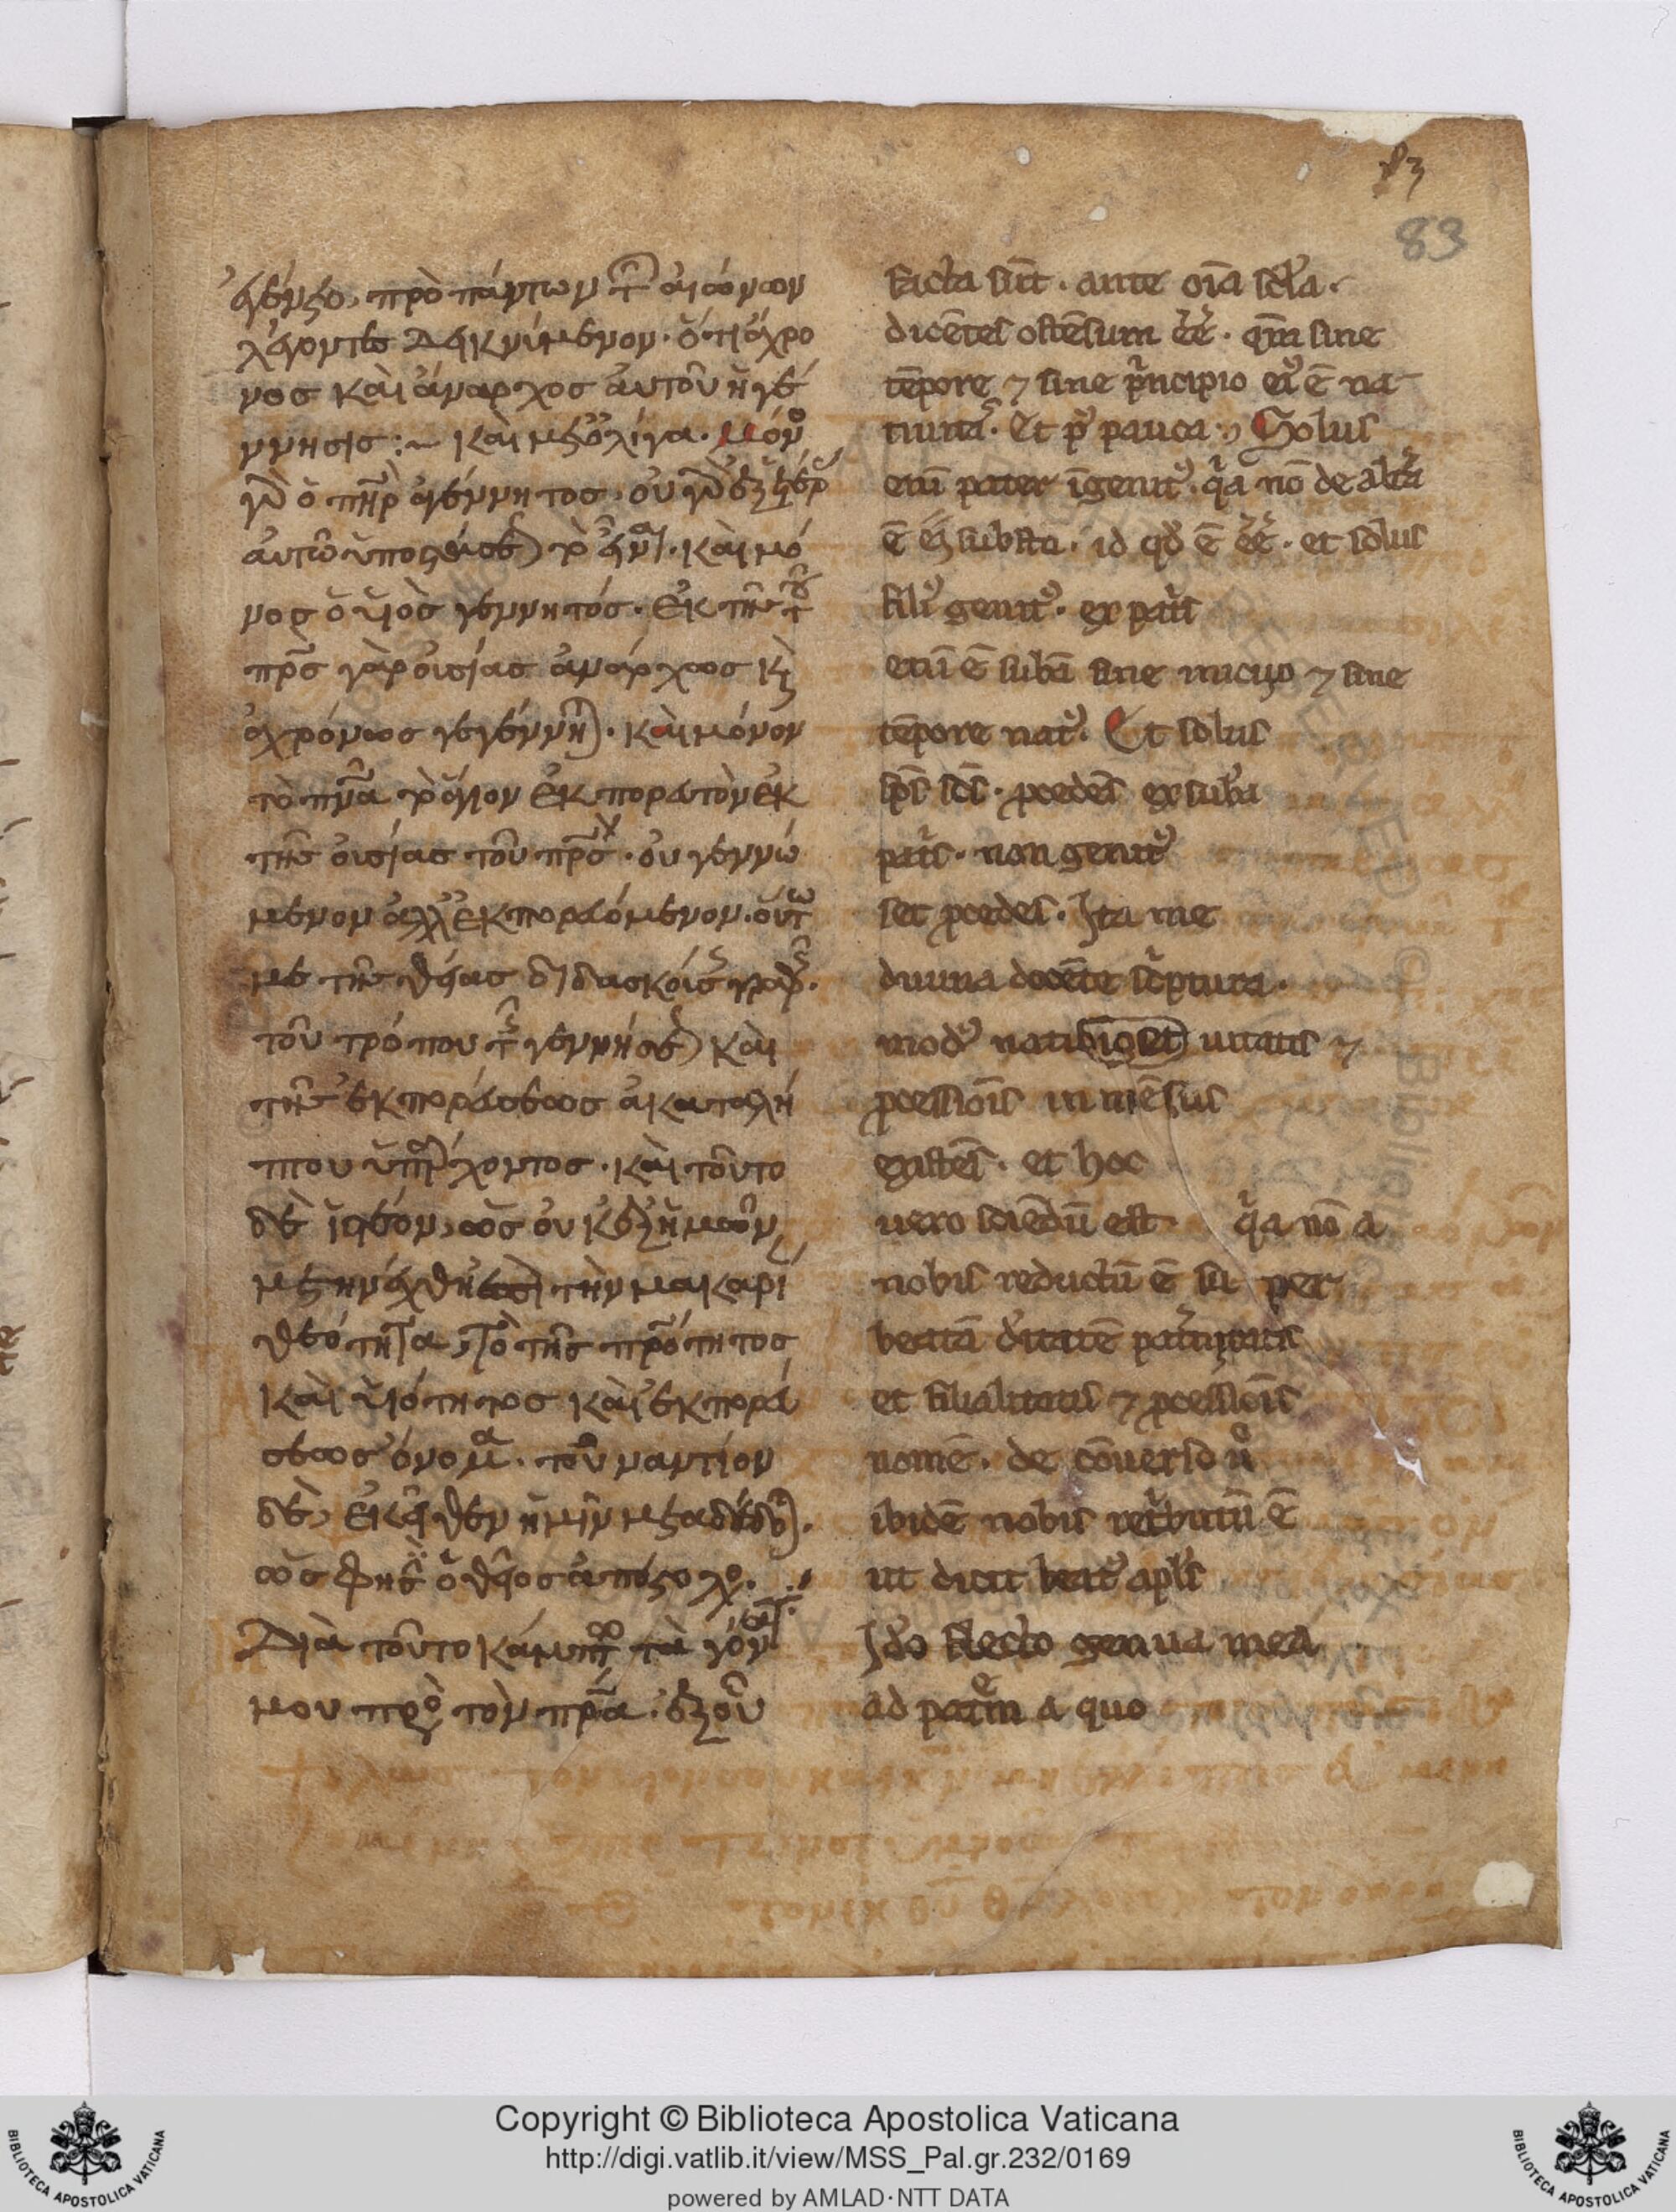 83
83
ἐγένετο, πρὸ πάντων τῶν αἰώνων
λέγοντες δεικνύμενον. ὅτι ἄχρο
νος καὶ ἄναρχος αὐτοῦ ἡ γέ
ννησις :~ καὶ μετ ὀλίγα. μόνος
γὰρ ὁ πηρ ἀγέννητος. οὐ γὰρ ἐξ ἑτέρ
αὐτῶ ὑποστάσεως τὸ εἶναι. καὶ μό
νος ὁ υἱὸς γεννητός. ἐκ τῆς τοῦ
πρς γὰρ οὐσίας ἀνάρχως κ
ἀχρόνως γεγέννηται. καὶ μόνον
τὸ πνα τὸ ἅγιον ἐκπορευτὸν ἐκ
τῆς οὐσίας τοῦ πρς. οὐ γεννώ
μενον ἀλλ ἐκπορευόμενον. οὕτω
με τῆς θείας διδασκούσης γραφῆς.
τοῦ τρόπου τῆς γεννήσεως καὶ
τῆς ἐκπορεύσεως ἀκαταλή
πτου ὑπάρχοντος. καὶ τοῦτο
δὲ ἰστέον, ὡς οὐκ ἐξ ἡμῶν
μετηνέχθη τὴν μακαρί
θεότητα, τὸ τῆς πρότητος
καὶ υἱότητος καὶ ἐκπορεύ
σεως ὄνομα. τοὐναντίον
δὲ, ἐκεῖθεν ἡμῖν μεταδέδοται.
ὥς φησὶ ὁ θεῖος ἀπόστολος.
Διὰ τοῦτο κάμπτω τὰ γόνατ
μου πρὸς τὸν πρα. ἐξ οὗ
facta sūt. ante oīa scła.
dicētes ostēsum ēē. qm̄ sine
tēpore ⁊ sine p̄ncipio ei᾽ ē na
tiuita᾽. Et p᾽ pauca. Solus
eni pater īgenit᾽. q̄a nō de alt̄a
ē ei substa. id qd̄ ē ēē. et solus
fili᾽ genit᾽. ex pat̄s
eni ē subā sine inicio ⁊ sine
tēpore nat᾽. Et solus
sp̄s sc̄s. p̄cedēs ex suba
pat̄s. non genit᾽
set p̄cedēs. Ita me
diuina docēte sc̄ptura.
mod᾽ natiuitatis ⁊
p̄cessiōis inmēsus
existēs. et hoc
uero sciēdū est q̄a nō a
nobis reductū ē su per
beatā d̄itatē pat̄nitatis
et filialitatis ⁊ p̄cessiōis
nomē. de cōuerso ū
ibidē nobis ret̄butū ē
ut dicit beat᾽ apl̄s
Ido flecto genua mea
ad patrem a quo
Copyright © Biblioteca Apostolica Vaticana
http://digi.vatlib.it/view/MSS_Pal.gr.232/0169
powered by AMLAD·NTT DATA
BIBLIOTECA APOSTOLICA VATICANA
BIBLIOTECA APOSTOLICA VATICANA